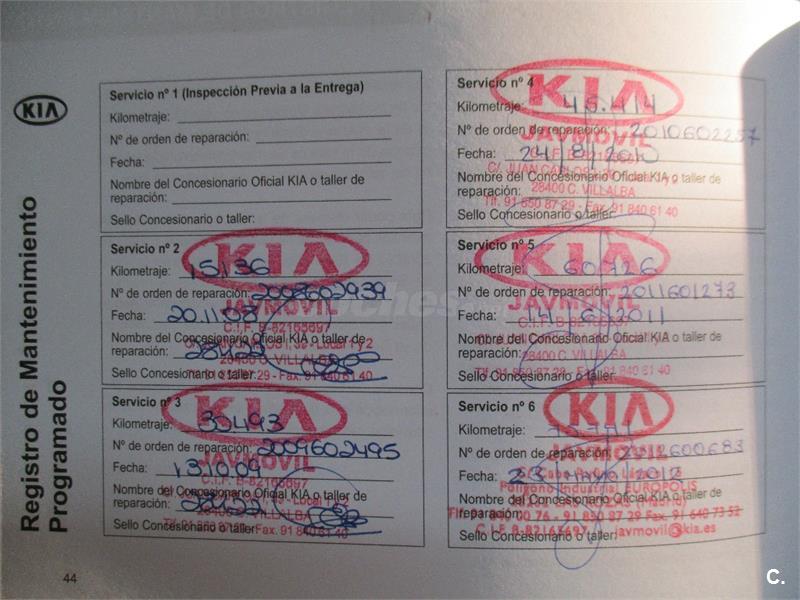 KIA
Registro de Mantenimiento
Programado
Servicio nº 1 (Inspección Previa a la Entrega)
Kilometraje:
Nº de orden de reparación:
Fecha:
Nombre del Concesionario Oficial KIA o taller de
reparación:
Sello Concesionario o taller:
Servicio nº 2
KIA
Kilometraje: 15.136
Nº de orden de reparación: 2008602939
JAVMOVIL
Fecha: 20.11.08
C.I.F. B-82165697
Nombre del Concesionario Oficial KIA o taller de
reparación:
28400 C. VILLALBA
Sello Concesionario o taller:
Fax. 91 840 61 40
Servicio nº 3
KIA
Kilometraje: 30493
Nº de orden de reparación: 2009602495
JAVMOVIL
Fecha: 13.10.09
C.I.F. B-82165697
Nombre del Concesionario Oficial KIA o taller de
reparación:
Sello Concesionario o taller:
Fax. 91 840 61 40
Servicio nº 4
KIA
Kilometraje: 45.414
Nº de orden de reparación: 2010602257
JAVMOVIL
Fecha: 24/8/2010
Nombre del Concesionario Oficial KIA o taller de
reparación:
28400 C. VILLALBA
Tlf. 91 850 87 29 - Fax. 91 840 61 40
Sello Concesionario o taller:
Servicio nº 5
KIA
Kilometraje: 60.726
Nº de orden de reparación: 2011601273
JAVMOVIL
Fecha: 14/6/2011
Nombre del Concesionario Oficial KIA o taller de
reparación:
28400 C. VILLALBA
Tlf. 91 850 87 29 - Fax. 91 840 61 40
Sello Concesionario o taller:
Servicio nº 6
KIA
Kilometraje:
Nº de orden de reparación: 2012600683
JAVMOVIL
Fecha: 23 Mayo 2012
Polígono Industrial EUROPOLIS
Nombre del Concesionario Oficial KIA o taller de
reparación:
91 850 87 29 Fax 91 640 73 52
C.I.F. B-82165697 javmovil@kia.es
Sello Concesionario o taller:
44
C.